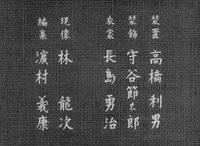 装置 高橋利男
装飾 守谷節太郎
衣裳 長島勇治
現像 林龍次
編集 濱村義康